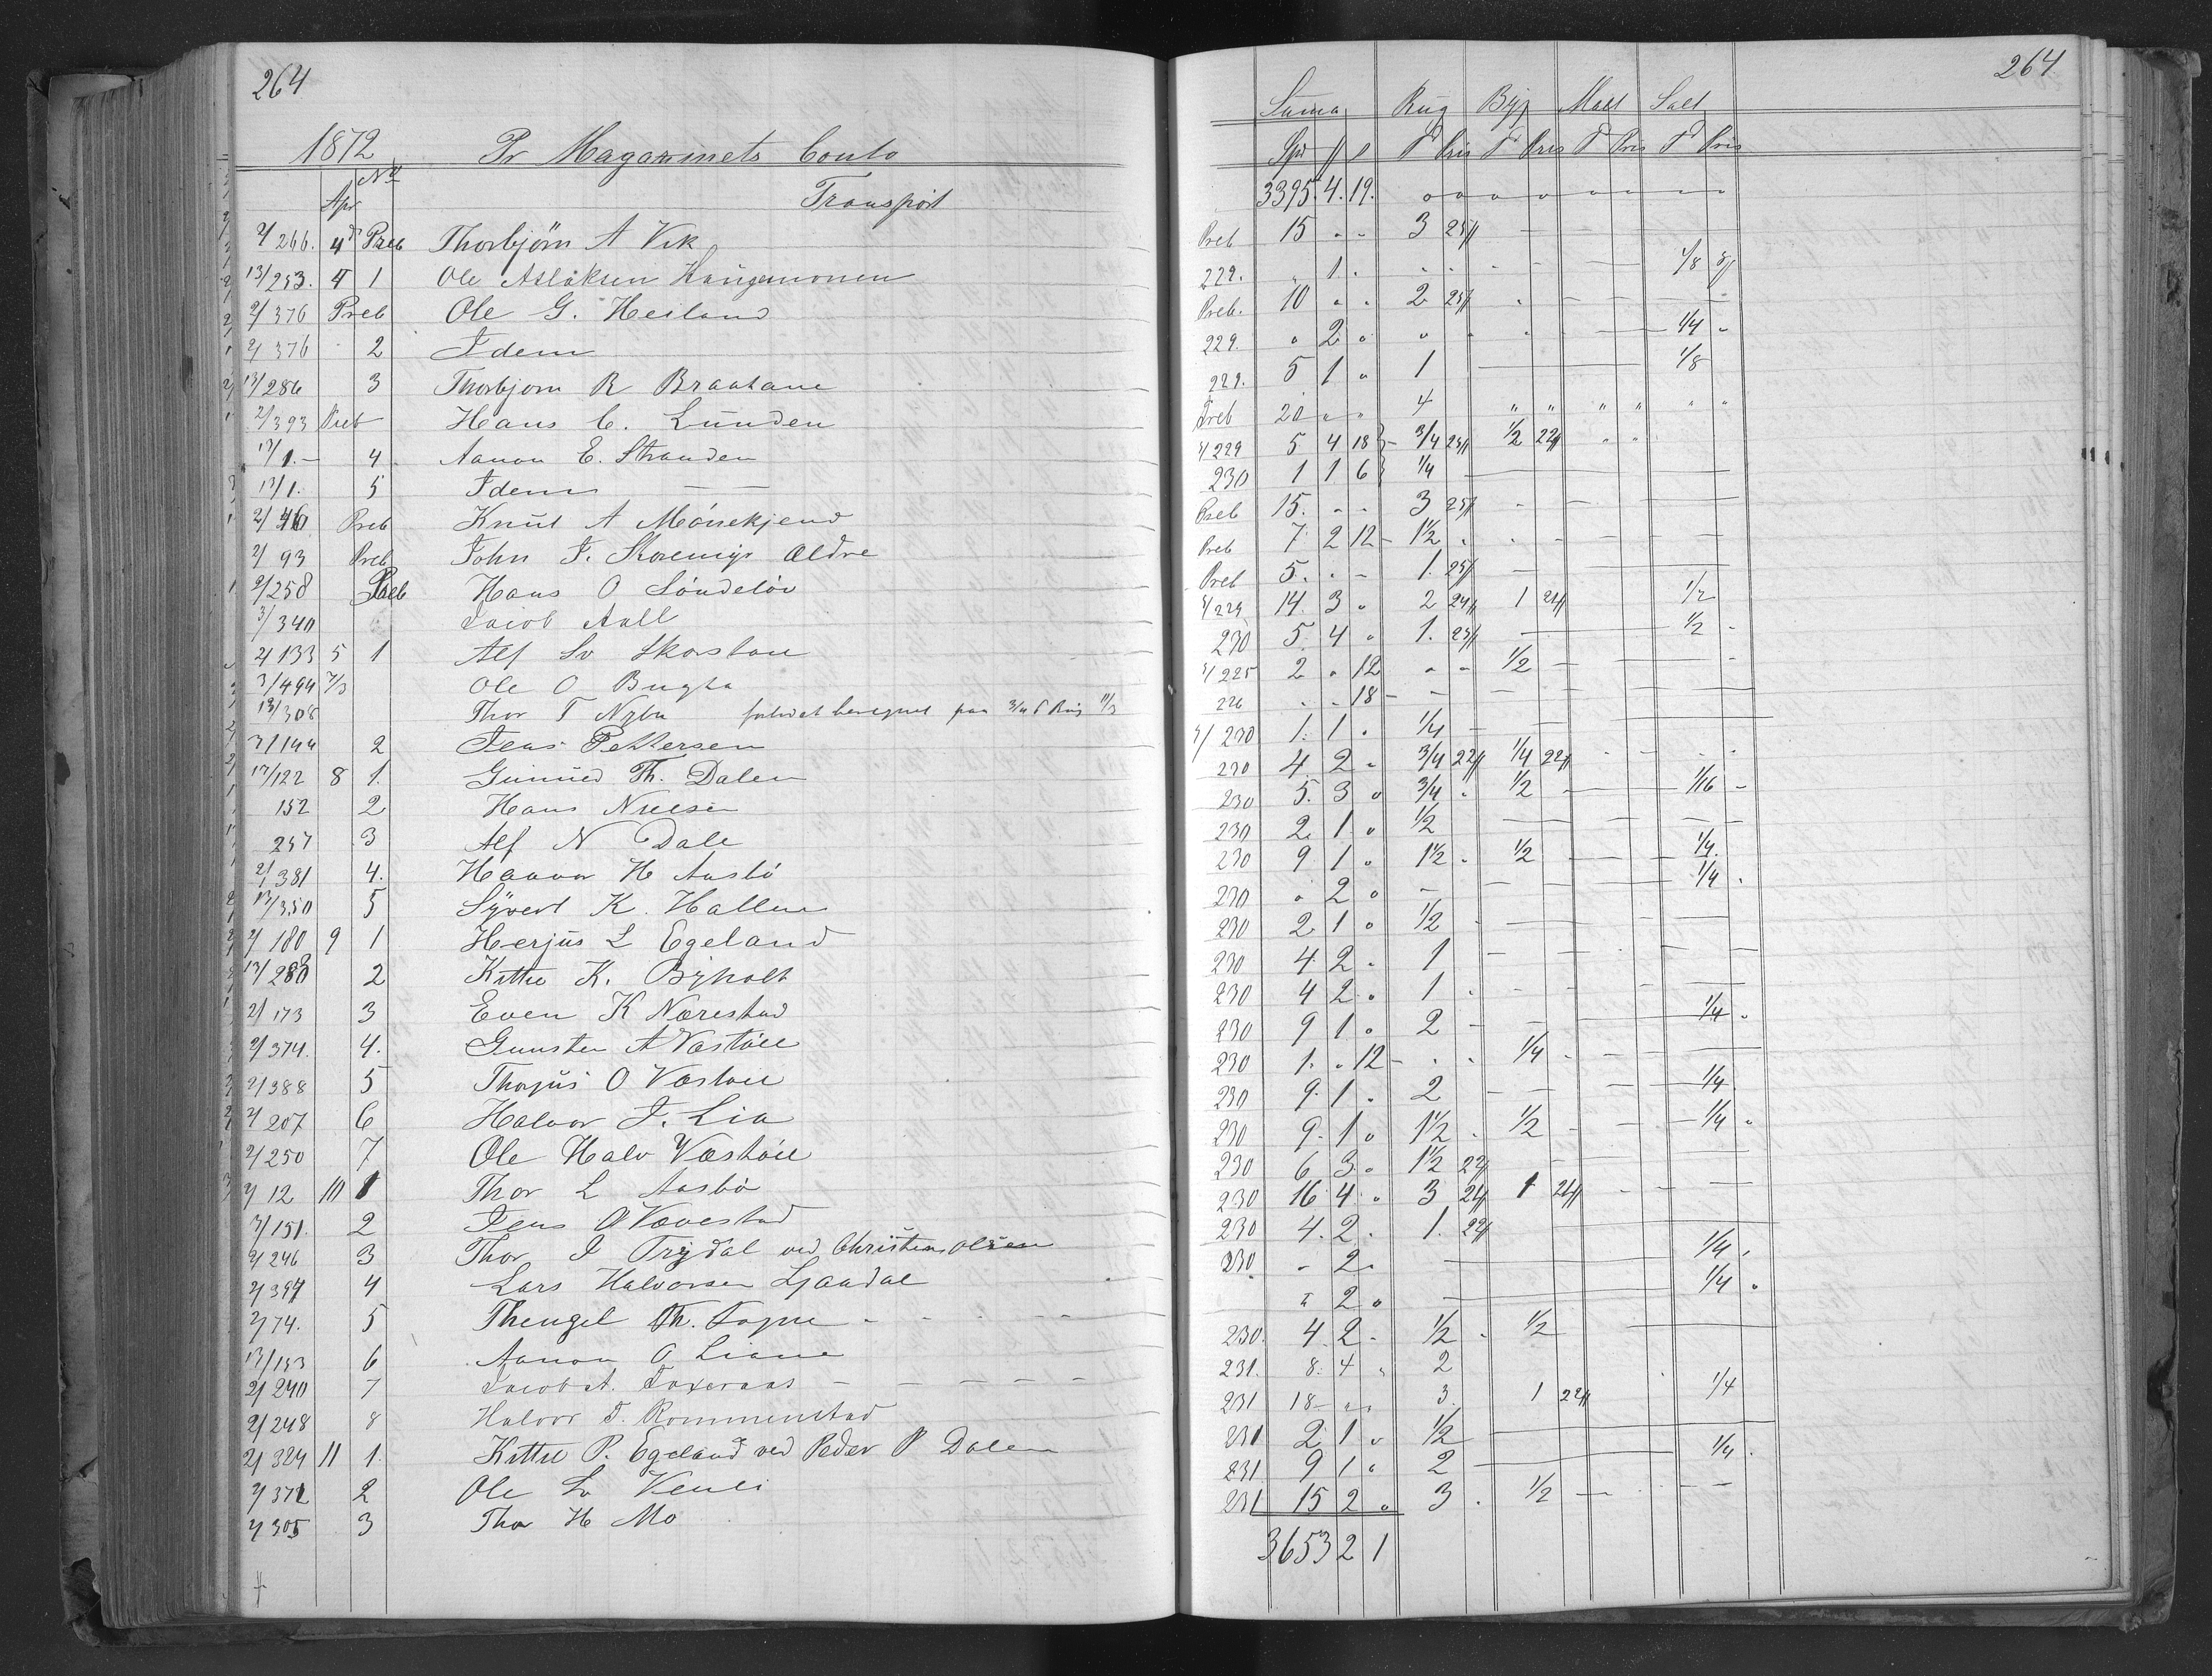 264
1872 Pr Magazinets Conto
Apr No Transport
2/266. 4d Preb Thorbjörn A Vik
13/253. 4 1 Ole Aslaksen Haugemonen
2/376 Preb Ole G. Heiland
2/376 2 Idem
13/286 3 Thorbjorn R Braatane
2/393 Preb Hans C. Lunden
17/1.- 4 Aanon E. Stranden
17/1. 5 Idem
Preb Knut A
2/93 Preb John J. Ældre
2/258 Preb Hans O Söndelöv
3/340 Jacob Aall
2/133 5 1 Alf Sv
3/494 7/3 Ole O Bugta
13/308 Thor T 3/4 T Rug 11/3
3/144 2 Jens Pettersen
17/122 8 1. Gunnild Th. Dalen
152 2 Hans Nielsen
257 3 Alf N Dale
2/381 4. Haavor H Aasbö
13/350 5 Syvert K. Hallen
2/180 9 1 Herjus L Egeland
13/280 2 Kittil K. Byholt
2/173 3 Even K Nærestad
2/374. 4. Gunsten A Væstöll
2/388 5 Thorjus O Væstöll
2/207 6 Halvor J. Lia
2/250 7 Ole Halv Væstöll
2/12 10 1 Thor L Aasbö
3/151. 2 Jens O Vævestad
2/246 3 Thor J Trydal ved Christen Olsen
2/397 4 Lars Halvorsen Ljaadal
2/74. 5 Thengel Th. Fogne
13/153 6 Aanon O Liane
2/240 7 Jacob A.
2/248 8 Halvor T. Rommenstad
2/324 11 1. Kittil P. Egeland ved Peder P Dalen
2/372 2 Ole Sv Venli
2/305 3 Thor H Mo
264
Suma Rug Byg Malt Salt
Spd ß T Pris T Pris T Pris T Pris
3395. 4. 19.
Preb 15 " " 3 25ß
229. " 1. 1/8 8ß
Preb. 10 " " 2 25ß
229. " 2 " 1/4
229. 5 1 " 1 1/8
Preb 20 " " 4
4/229 5 4 18 3/4 23ß 1/2 22ß
230 1 1 6 1/4
Preb 15. " " 3 25ß
Preb 7 2 12 1 1/2
Preb 5. " - 1. 25ß
4/229 14. 3 " 2 24ß 1 24ß 1/2
230 5. 4 " 1. 23ß 1/2
4/225 2 " 12 1/2
226 " " 18
4/230 1. 1 . 1/4
230 4 2 " 3/4 22ß 1/4 22ß
230 5. 3 " 3/4 1/2 1/16
230 2. 1 " 1/2
230 9 1 " 1 1/2 1/2 1/4.
230 " 2 " 1/4
230 2 1 " 1/2
230 4 2 " 1
230 4 2 " 1
230 9 1 " 2 1/4
230 1. " 12 1/4
230 9. 1 " 2 1/4
230 9. 1 " 1 1/2 1/2 1/4
230 6 3 " 1 1/2 22ß
230 16 4 " 3 24ß 1 24ß
230 4. 2 . 1. 22ß
230 " 2 " 1/4
" 2 " 1/4
230. 4 2 " 1/2 1/2
231. 8. 4 " 2
231 18 " " 3 1 22ß 1/4
231 2 1 " 1/2
231 9 1 " 2 1/4
231 15 2 " 3 1/2
3653 2 1